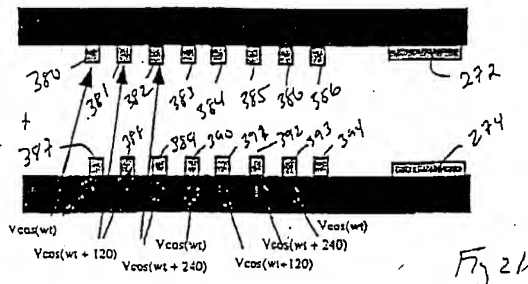 380 381 382 383 384 385 386 272
+
387 388 389 390 392 393 394 274
Vcos(wt) Vcos(wt) Vcos(wt)
Vcos(wt + 120) Vcos(wt + 240) Vcos(wt+120) Vcos(wt + 240)